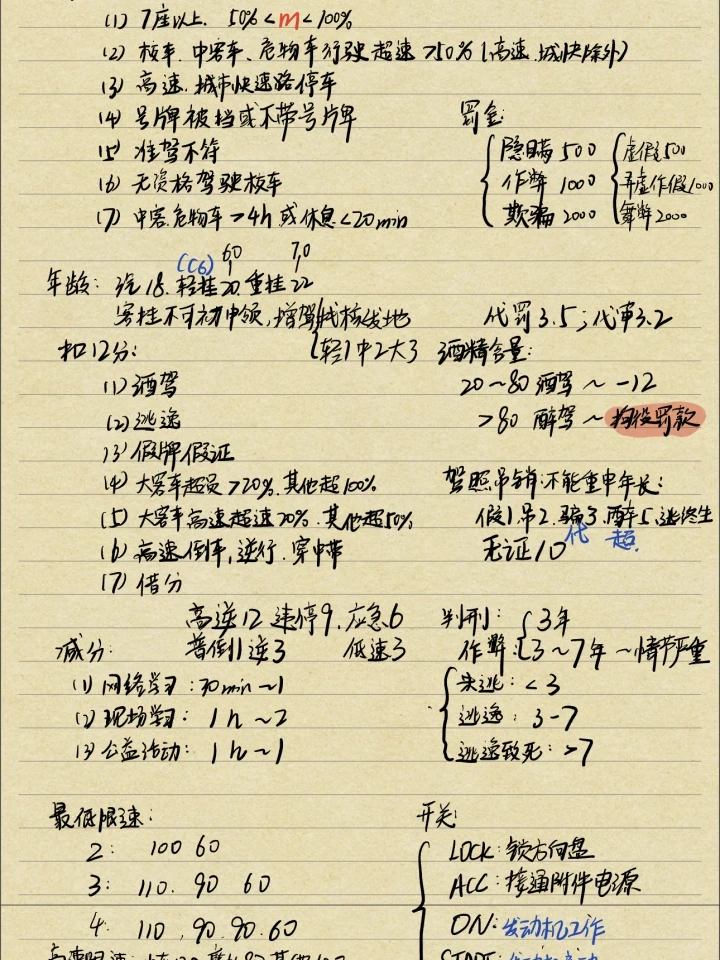 (1) 7座以上. 50%<m<100%
(2) 校车. 中客车、危物车行驶超速>50%(高速.城快除外)
(3) 高速.城市快速路停车
(4) 号牌被挡或不带号牌
(5) 准驾不符
(6) 无资格驾驶校车
(7) 中客.危物车>4h或休息<20min
罚金:
隐瞒 500
作弊 1000
欺骗 2000
虚假500
弄虚作假1000
舞弊2000
(C6) 60 70
年龄: 汽18.轻挂20.重挂22
客挂不可初申领,增驾找核发地
轻1中2大3
代罚3.5;代审3.2
扣12分:
(1) 酒驾
(2) 逃逸
(3) 假牌假证
(4) 大客车超员>20%.其他超100%
(5) 大客车高速超速20%.其他超50%
(6) 高速倒车,逆行.穿中带
(7) 借分
高逆12 违停9.应急6
普倒1逆3 低速3
酒精含量:
20~80 酒驾 ~ -12
>80 醉驾 ~ 拘役罚款
驾照吊销:不能重申年长:
假1.吊2.骗3.醉5.逃终生
无证10 代 超.
判刑:
作弊:
3年
3~7年 ~情节严重
未逃: <3
逃逸: 3-7
逃逸致死: >7
减分:
(1) 网络学习:30min~1
(2) 现场学习: 1h~2
(3) 公益活动: 1h~1
最低限速:
2: 100 60
3: 110. 90 60
4: 110 , 90. 90. 60
开关:
LOCK: 锁方向盘
ACC: 接通附件电源
ON: 发动机工作